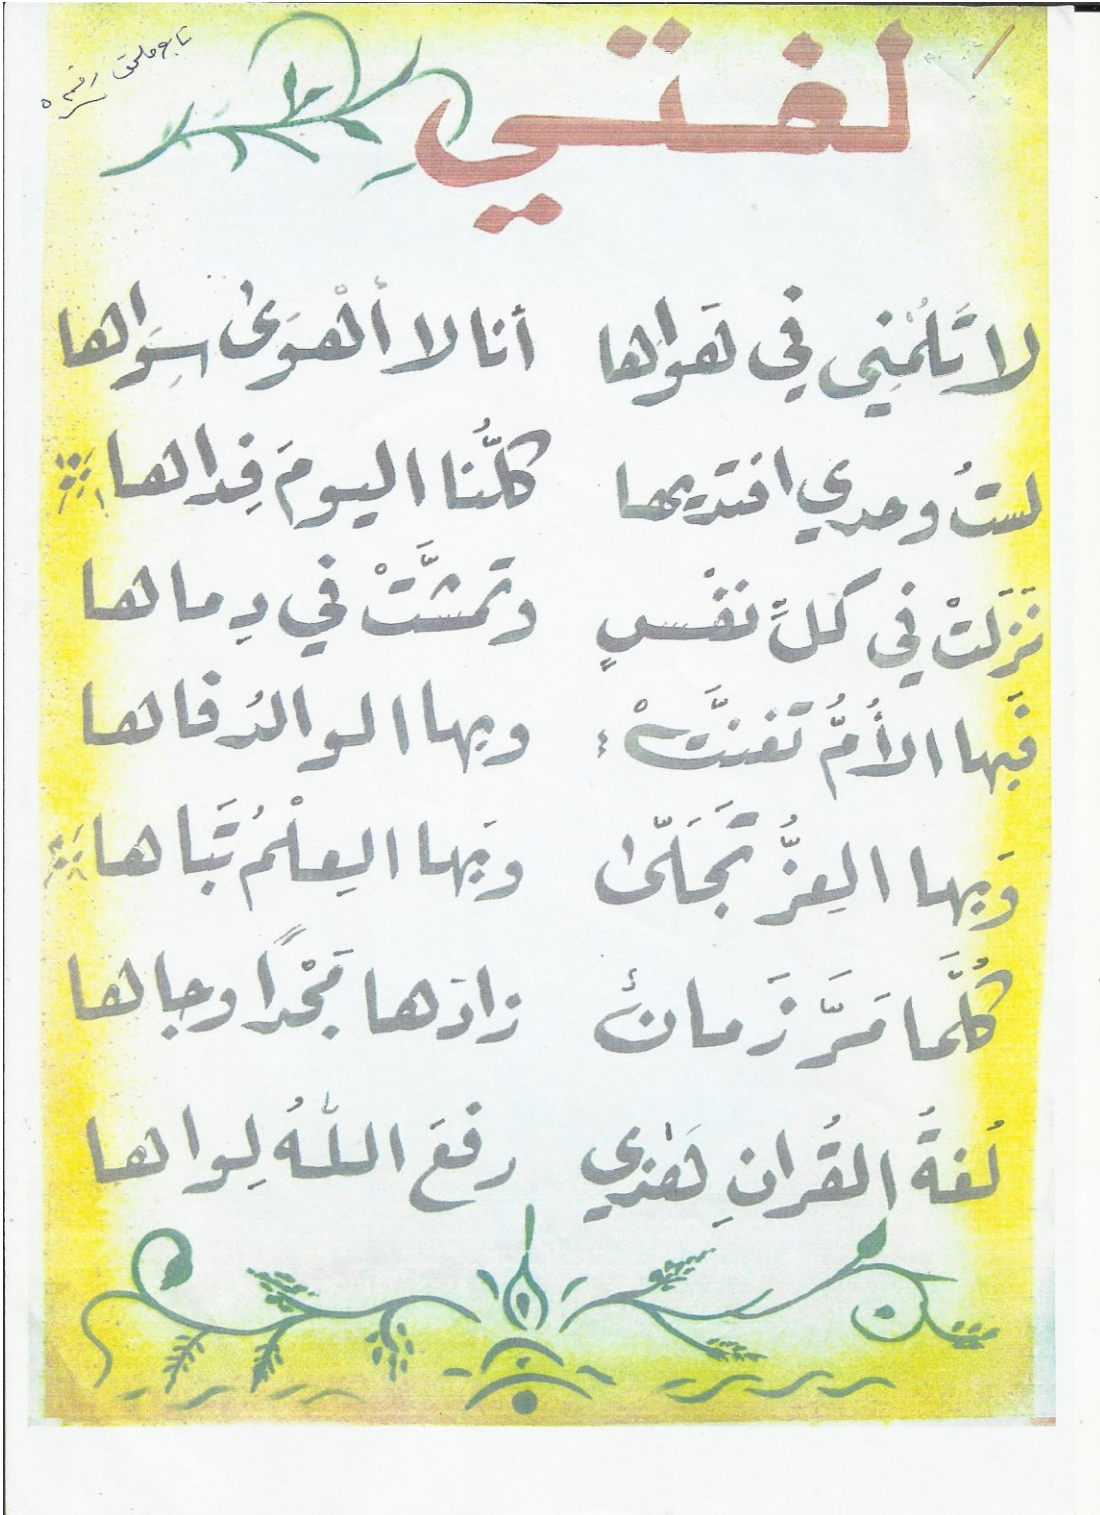 تابع ملحق رقم ٥
لغتي
لا تَلُمْني في هَواها أنا لا أهْوَىٰ سِوَاها
لستُ وحدي افتديها كلُّنا اليومَ فِداها
نَزَلتْ في كلِّ نفْسٍ وتمشَّتْ في دِماها
فَبها الأُمُّ تغنَّتْ وبها الوالدُ فاها
وَبها العِزُّ تجَلّىٰ وبَها العِلْمُ تَباها
كُلَّما مَرَّ زَمانٌ زادَها مَجْدًا وجاها
لُغةُ القُرانِ هَٰذي رفعَ اللّٰهُ لِواها